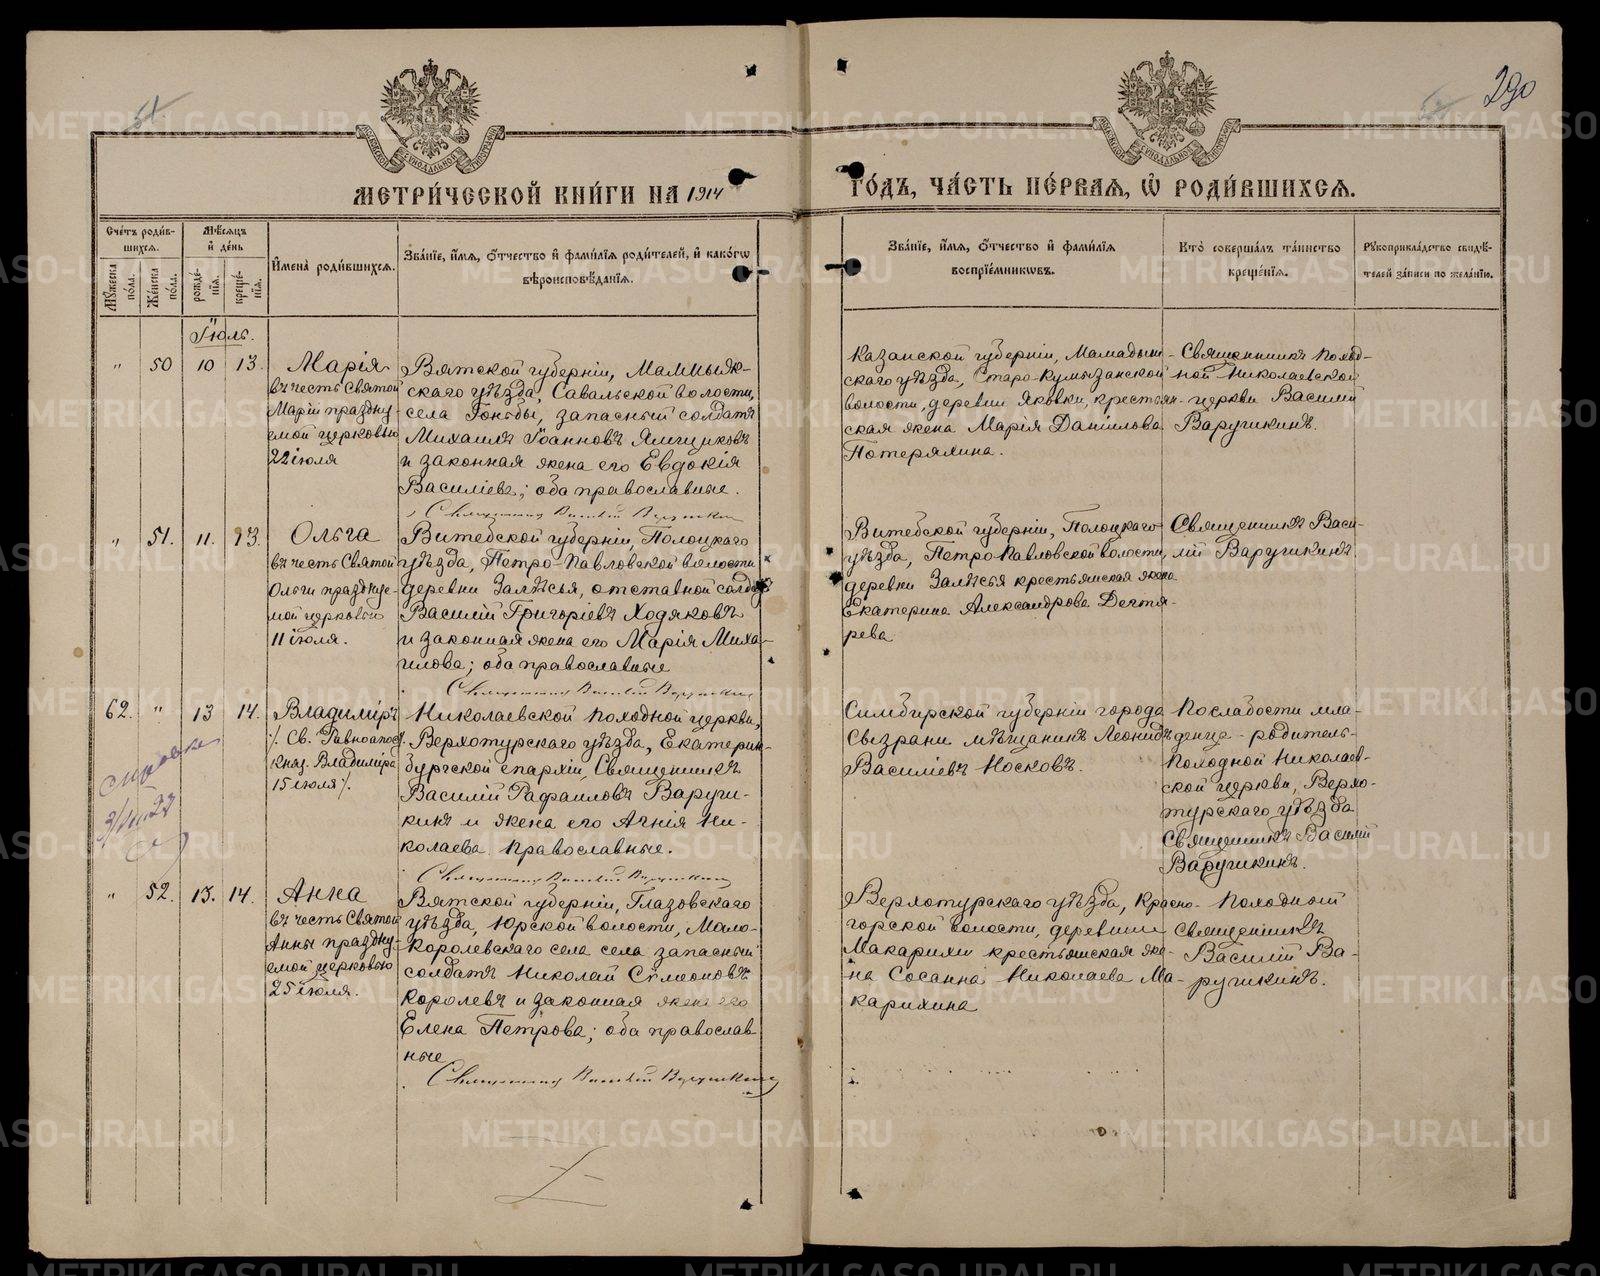 51
290
МЕТРИ́ЧЕСКОЙ КНИ́ГИ НА 1914
ГО́ДЪ, ЧА́СТЬ ПЕ́РВАѦ, Ѽ РОДИ́ВШИХСѦ.
Сче́тъ роди́в-
шихсѧ.
Мѣ́сѧцъ
и҆ де́нь
Мꙋ́жеска по́ла.
Же́нска по́ла.
рожде́нїѧ.
креще́нїѧ.
И҆мена̀ роди́вшихсѧ.
Зва́нїе, и҆́мѧ, ѻ҆́тчество и҆ фами́лїѧ роди́телей, и҆ како́гѡ
вѣроисповѣ́данїѧ.
Зва́нїе, и҆́мѧ, ѻ҆́тчество и҆ фами́лїѧ
воспрїе́мникѡвъ.
Кто̀ соверша́лъ та́инство
креще́нїѧ.
Рꙋкоприкла́дство свидѣ́-
телей за́писи по жела́нїю.
Іюль.
" 50 10 13.
Марія
въ честь Святой
Маріи праздну-
емой церковью
22 іюля
Вятской губерніи, Малмыж-
скаго уѣзда, Савальской волости,
села Гоньбы, запасный солдатъ
Михаилъ Іоанновъ Ямщиковъ
и законная жена его Евдокія
Василіева; оба православные.
Священник Василій Варушкин
Казанской губерніи, Мамадыш-
скаго уѣзда, Старо-Кумызанской
волости, деревни Яковки, крестьян-
ская жена Марія Даніилова
Потеряхина.
Священникъ Поход-
ной Николаевской
церкви Василій
Варушкинъ.
" 51. 11. 13.
Ольга
въ честь Святой
Ольги праздиуе-
мой церковью
11 іюля.
Витебской губерніи, Полоцкаго
уѣзда, Петро-Павловской волости
деревни Залѣсья, отставной солдатъ
Василій Григоріевъ Ходяковъ
и законная жена его Марія Миха-
илова; оба православные
Священник Василій Варушкин
Витебской губерніи, Полоцкаго
уѣзда, Петро-Павловской волости,
деревни Залѣсья крестьянская жена
Екатерина Александрова Дегтя-
рева
Священникъ Васи-
лій Варушкинъ
62. " 13 14.
Владимiръ
/. Св. Равноапост.
княз. Владиміра
15 іюля /.
Николаевской Походной церкви,
Верхотурскаго уѣзда, Екатерин-
бургской епархіи, Священникъ
Василій Рафаиловъ Варуш-
кинъ и жена его Агнія Ни-
колаева православные.
Священник Василій Варушкин
Симбирской губерніи города
Сызрани мѣщанинъ Леонидъ
Василіевъ Носковъ.
По слабости мла-
денца - родитель-
Походной Николаев-
ской церкви, Верхо-
турскаго уѣзда
Священникъ Василій
Варушкинъ.
" 52. 13. 14.
Анна
въ честь Святой
Анны праздну-
емой церковью
25 іюля.
Вятской губерніи, Глазовскаго
уѣзда, Юрской волости, Мало-
Королевскаго села села запасный
солдатъ Николай Сѵмеоновъ
Королевъ и законная жена его
Елена Петрова; оба православ
ные
Священник Василій Варушкин
Верхотурскаго уѣзда, Красно-
горской волости, деревни
Макарихи крестьянская же-
на Сосанна Николаева Ма-
карихина
Походный
Священникъ
Василій Ва-
рушкинъ.
METRIKI.GASO-URAL.RU